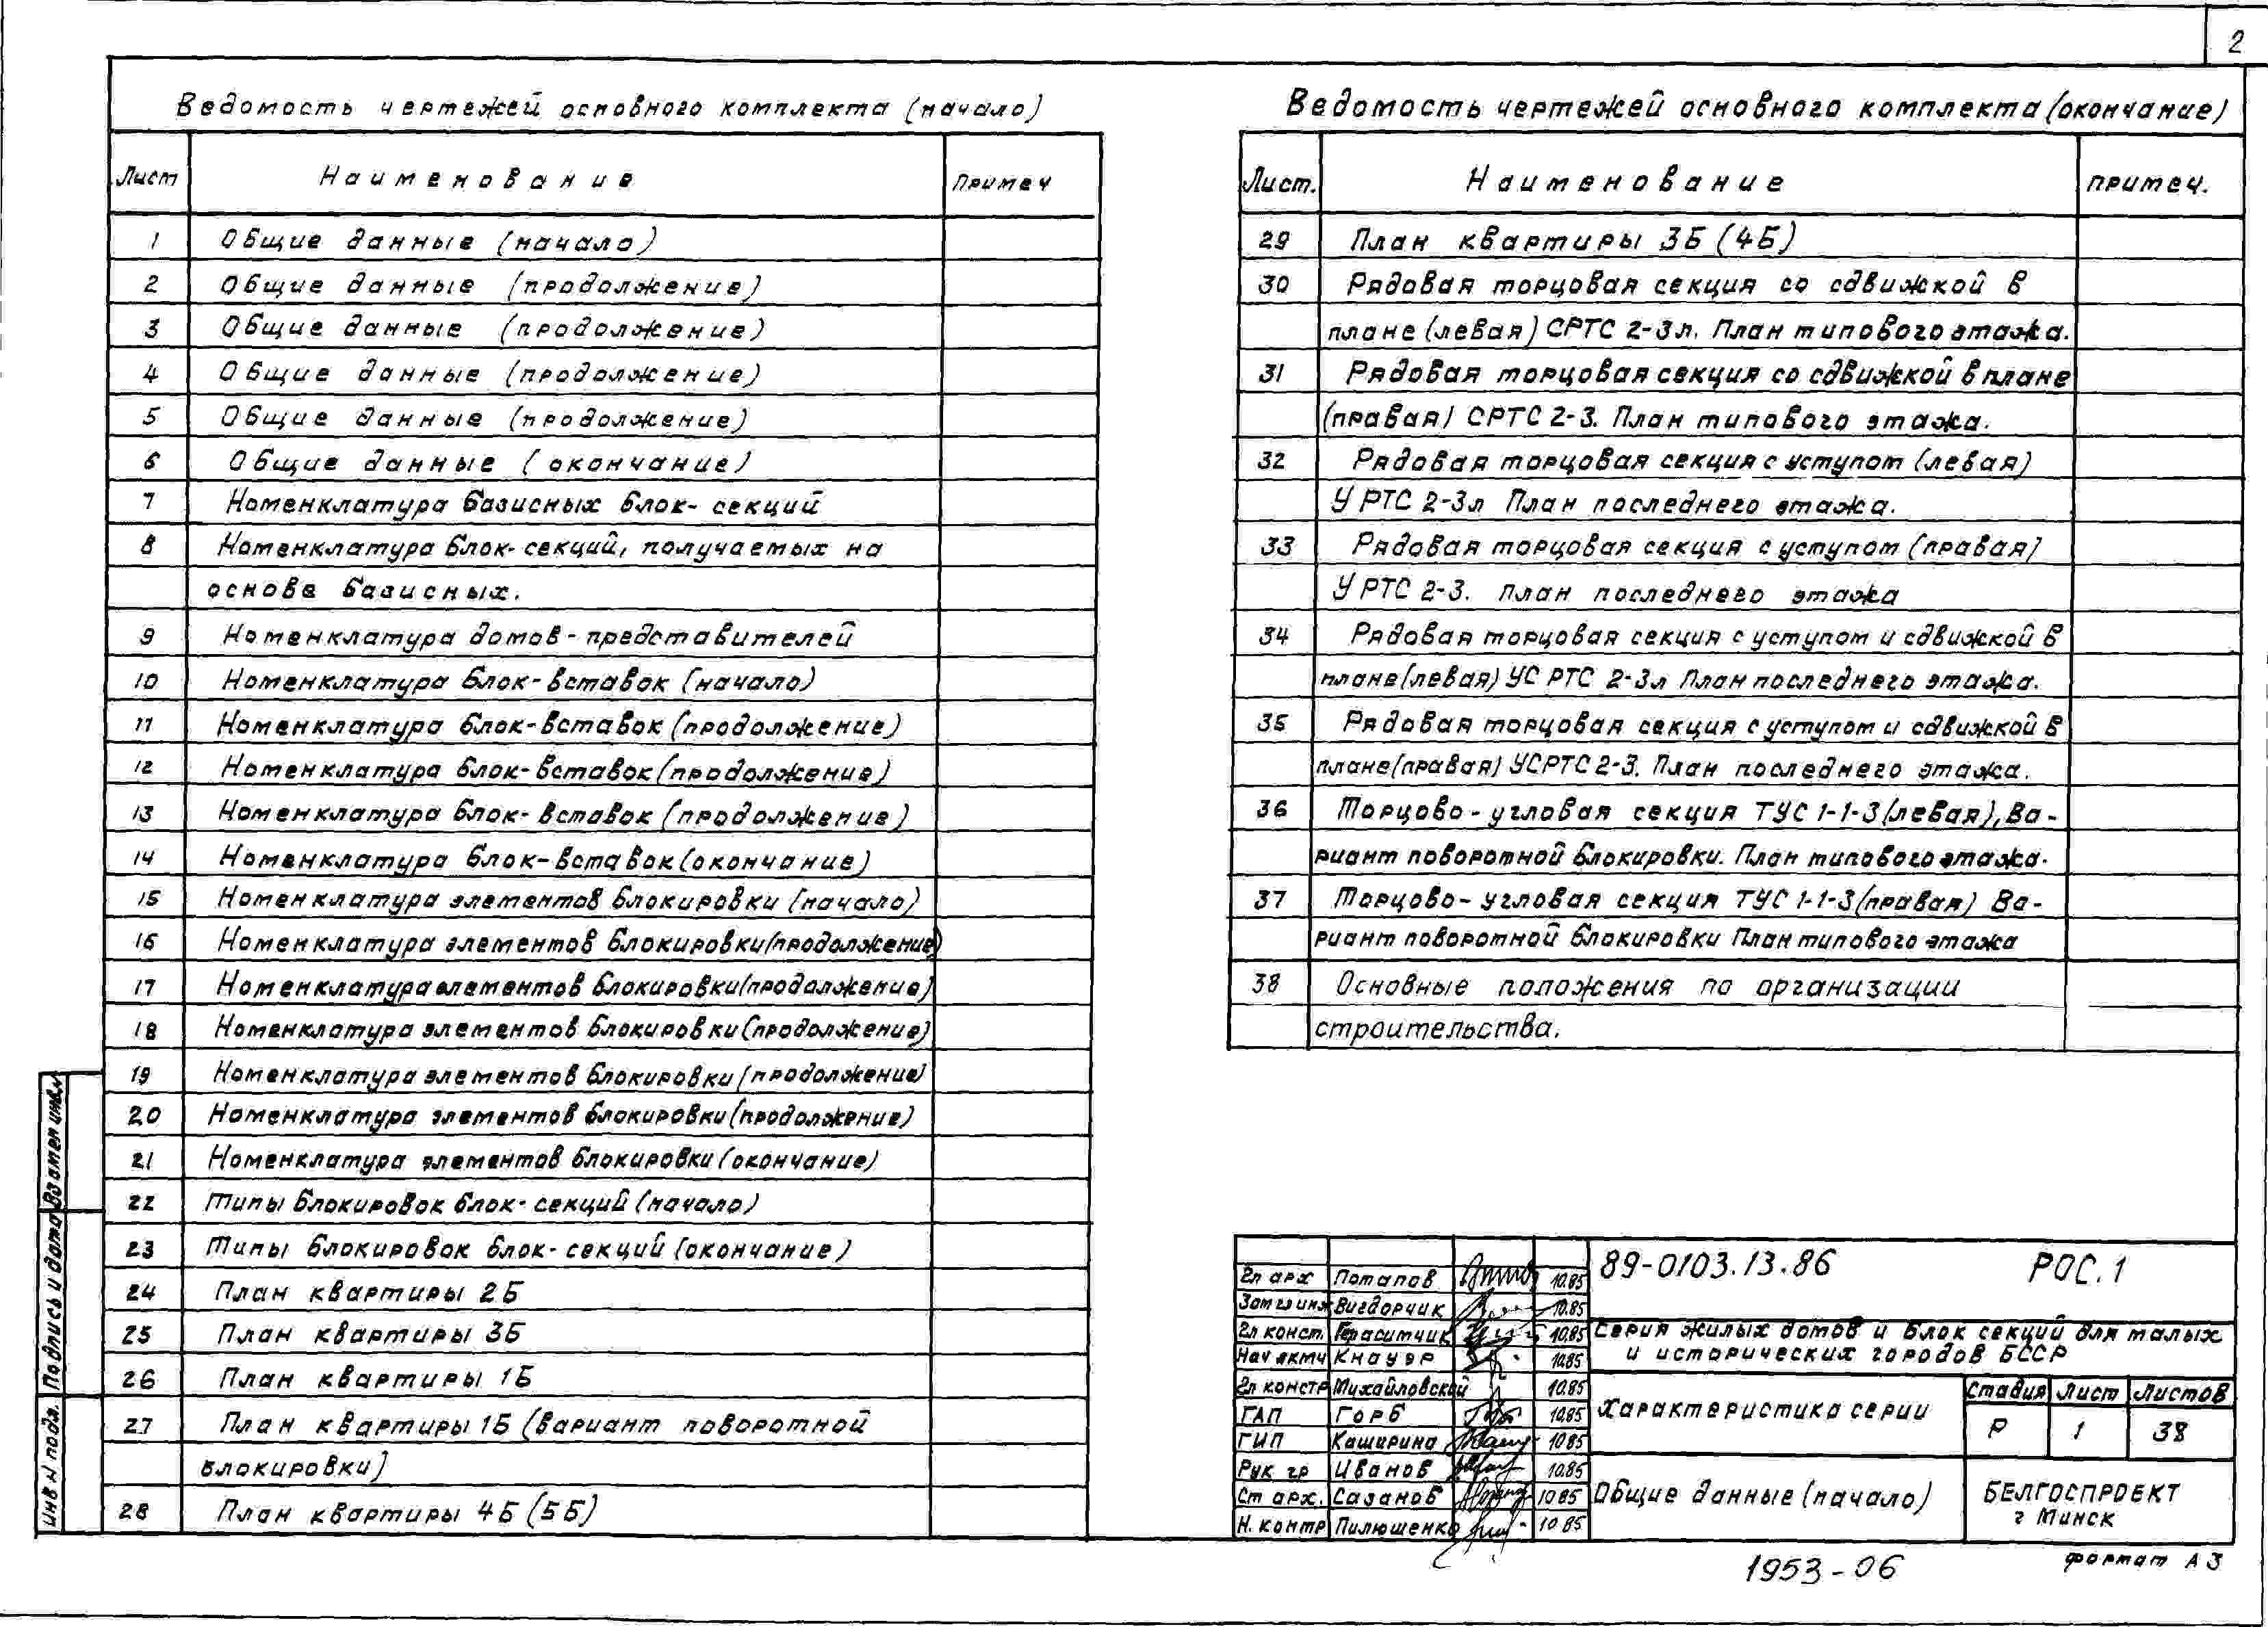 2
Ведомость чертежей основного комплекта (начало)
Лист Наименование Примеч
1 Общие данные (начало)
2 Общие данные (продолжение)
3 Общие данные (продолжение)
4 Общие данные (продолжение)
5 Общие данные (продолжение)
6 Общие данные (окончание)
7 Номенклатура базисных блок-секций
8 Номенклатура блок-секций, получаемых на
основе базисных.
9 Номенклатура домов-представителей
10 Номенклатура блок-вставок (начало)
11 Номенклатура блок-вставок (продолжение)
12 Номенклатура блок-вставок (продолжение)
13 Номенклатура блок-вставок (продолжение)
14 Номенклатура блок-вставок (окончание)
15 Номенклатура элементов блокировки (начало)
16 Номенклатура элементов блокировки (продолжение)
17 Номенклатура элементов блокировки (продолжение)
18 Номенклатура элементов блокировки (продолжение)
19 Номенклатура элементов блокировки (продолжение)
20 Номенклатура элементов блокировки (продолжение)
21 Номенклатура элементов блокировки (окончание)
22 Типы блокировок блок-секций (начало)
23 Типы блокировок блок-секций (окончание)
24 План квартиры 2Б
25 План квартиры 3Б
26 План квартиры 1Б
27 План квартиры 1Б (вариант поворотной
блокировки)
28 План квартиры 4Б (5Б)
Ведомость чертежей основного комплекта (окончание)
Лист. Наименование примеч.
29 План квартиры 3Б (4Б)
30 Рядовая торцовая секция со сдвижкой в
плане (левая) СРТС 2-3л. План типового этажа.
31 Рядовая торцовая секция со сдвижкой в плане
(правая) СРТС 2-3. План типового этажа.
32 Рядовая торцовая секция с уступом (левая)
УРТС 2-3л План последнего этажа.
33 Рядовая торцовая секция с уступом (правая)
УРТС 2-3. План последнего этажа
34 Рядовая торцовая секция с уступом и сдвижкой в
плане (левая) УСРТС 2-3л План последнего этажа.
35 Рядовая торцовая секция с уступом и сдвижкой в
плане (правая) УСРТС 2-3. План последнего этажа.
36 Торцово-угловая секция ТУС 1-1-3 (левая), Ва-
риант поворотной блокировки. План типового этажа.
37 Торцово-угловая секция ТУС 1-1-3 (правая) Ва-
риант поворотной блокировки План типового этажа
38 Основные положения по организации
строительства.
Взамен инв.№
Подпись и дата
Инв № подл.
Гл арх Потапов 10.85
Зам гл инж Вигдорчик 10.85
Гл конст. Герасимчик 10.85
Нач актм Кнауэр 10.85
Гл констр Михайловский 10.85
ГАП Горб 10.85
ГИП Каширина 10 85
Рук гр Иванов 10.85
Ст арх. Сазанов 10 85
Н. контр Пилюшенко 10 85
89-0103.13.86 РОС.1
Серия жилых домов и блок секций для малых
и исторических городов БССР
Характеристика серии
Стадия Лист Листов
Р 1 38
Общие данные (начало)
БЕЛГОСПРОЕКТ
г Минск
1953-06
формат А3